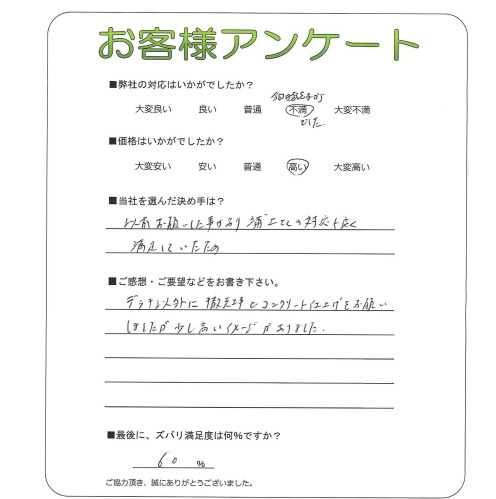 お客様アンケート
■弊社の対応はいかがでしたか？
大変良い 良い 普通 不満 大変不満
でした.
■価格はいかがでしたか？
大変安い 安い 普通 高い 大変高い
■当社を選んだ決め手は？
以前お願いした事があり の対応も良く
満足していたため
■ご感想・ご要望などをお書き下さい。
デッキ以外に 工事とコンクリート仕上げをお願い
しましたが少し高いイメージがありました.
■最後に、ズバリ満足度は何％ですか？
60 ％
ご協力頂き、誠にありがとうございました。